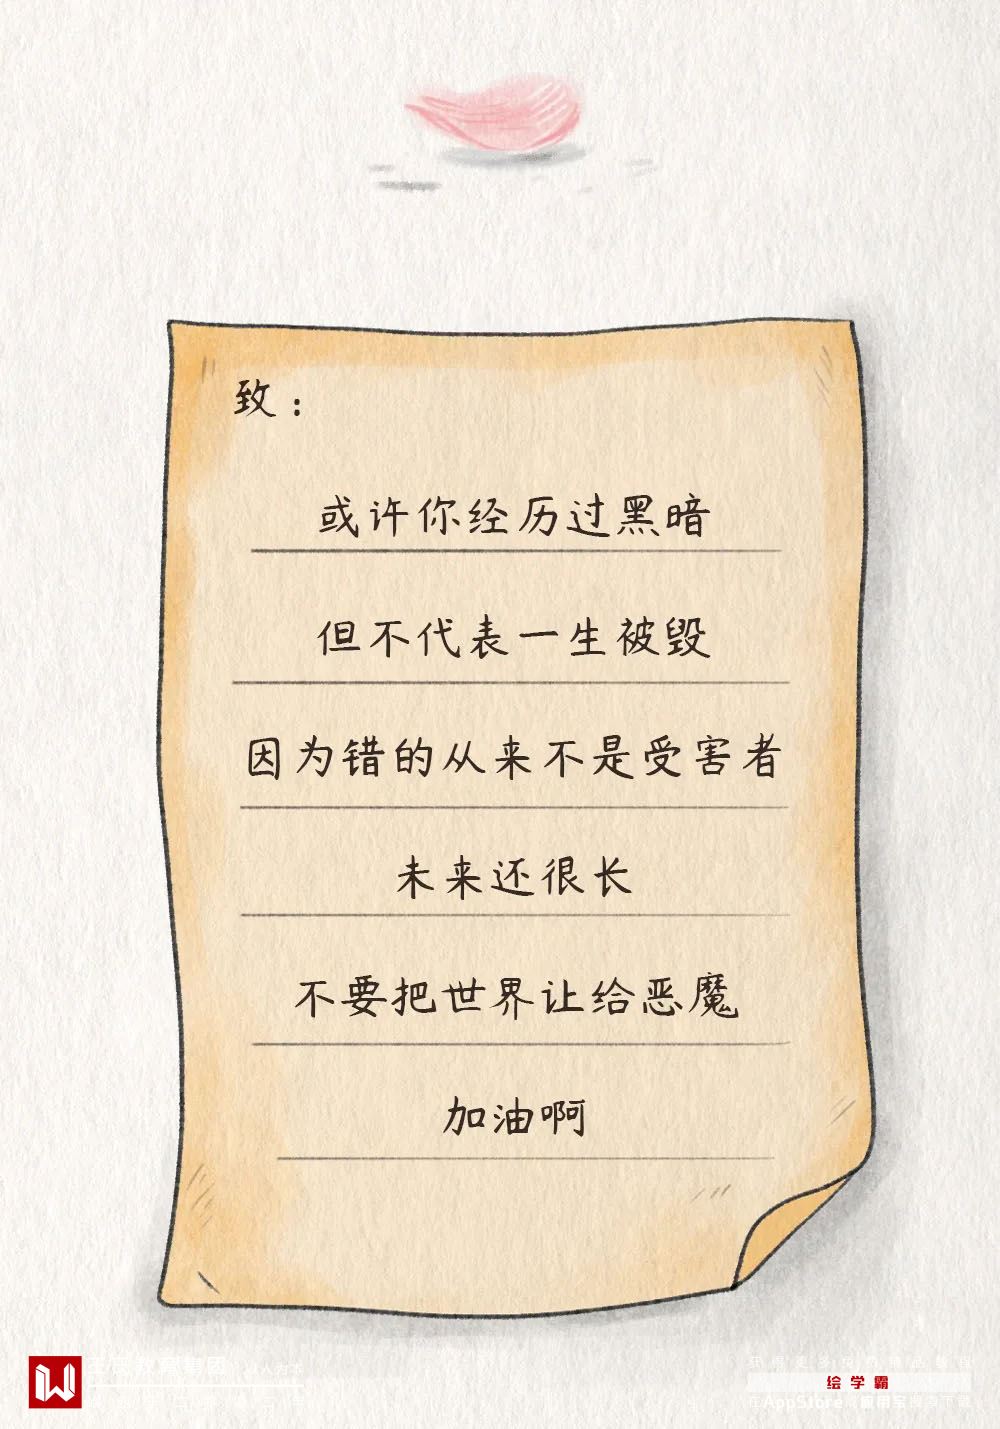 致：
或许你经历过黑暗
但不代表一生被毁
因为错的从来不是受害者
未来还很长
不要把世界让给恶魔
加油啊
绘学霸